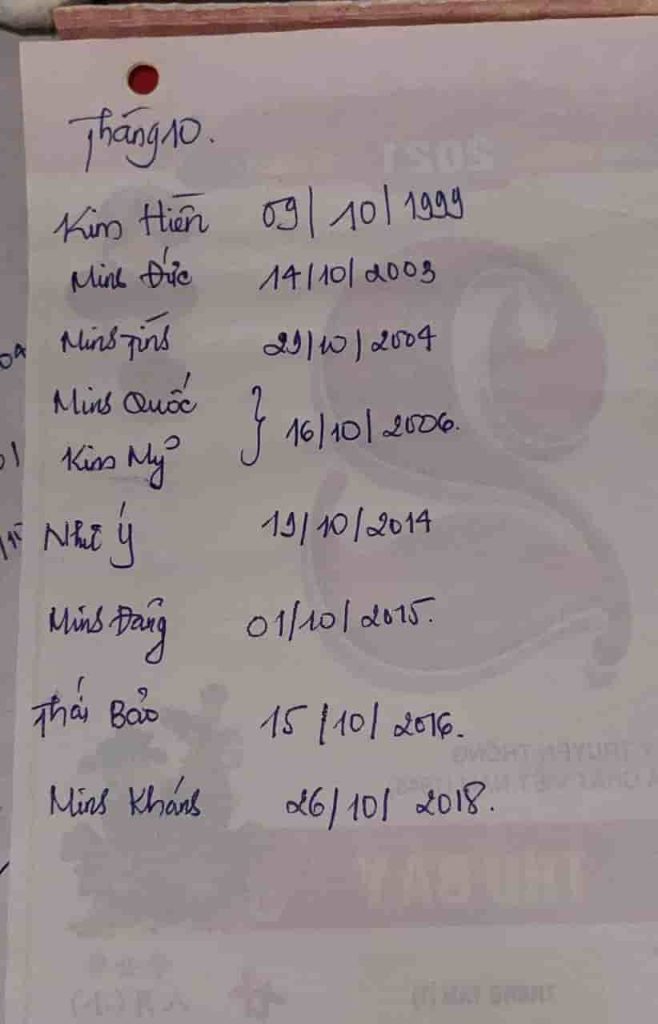 Tháng 10.
Kim Hiền 09/10/1999
Minh Đức 14/10/2003
Minh Tính 29/10/2004
Minh Quốc } 16/10/2006.
Kim Mỹ
Như Ý 19/10/2014
Minh Đăng 01/10/2015.
Thái Bảo 15/10/2016.
Minh Khánh 26/10/2018.
2021
TRUYỀN THỐNG
THỨ BẢY